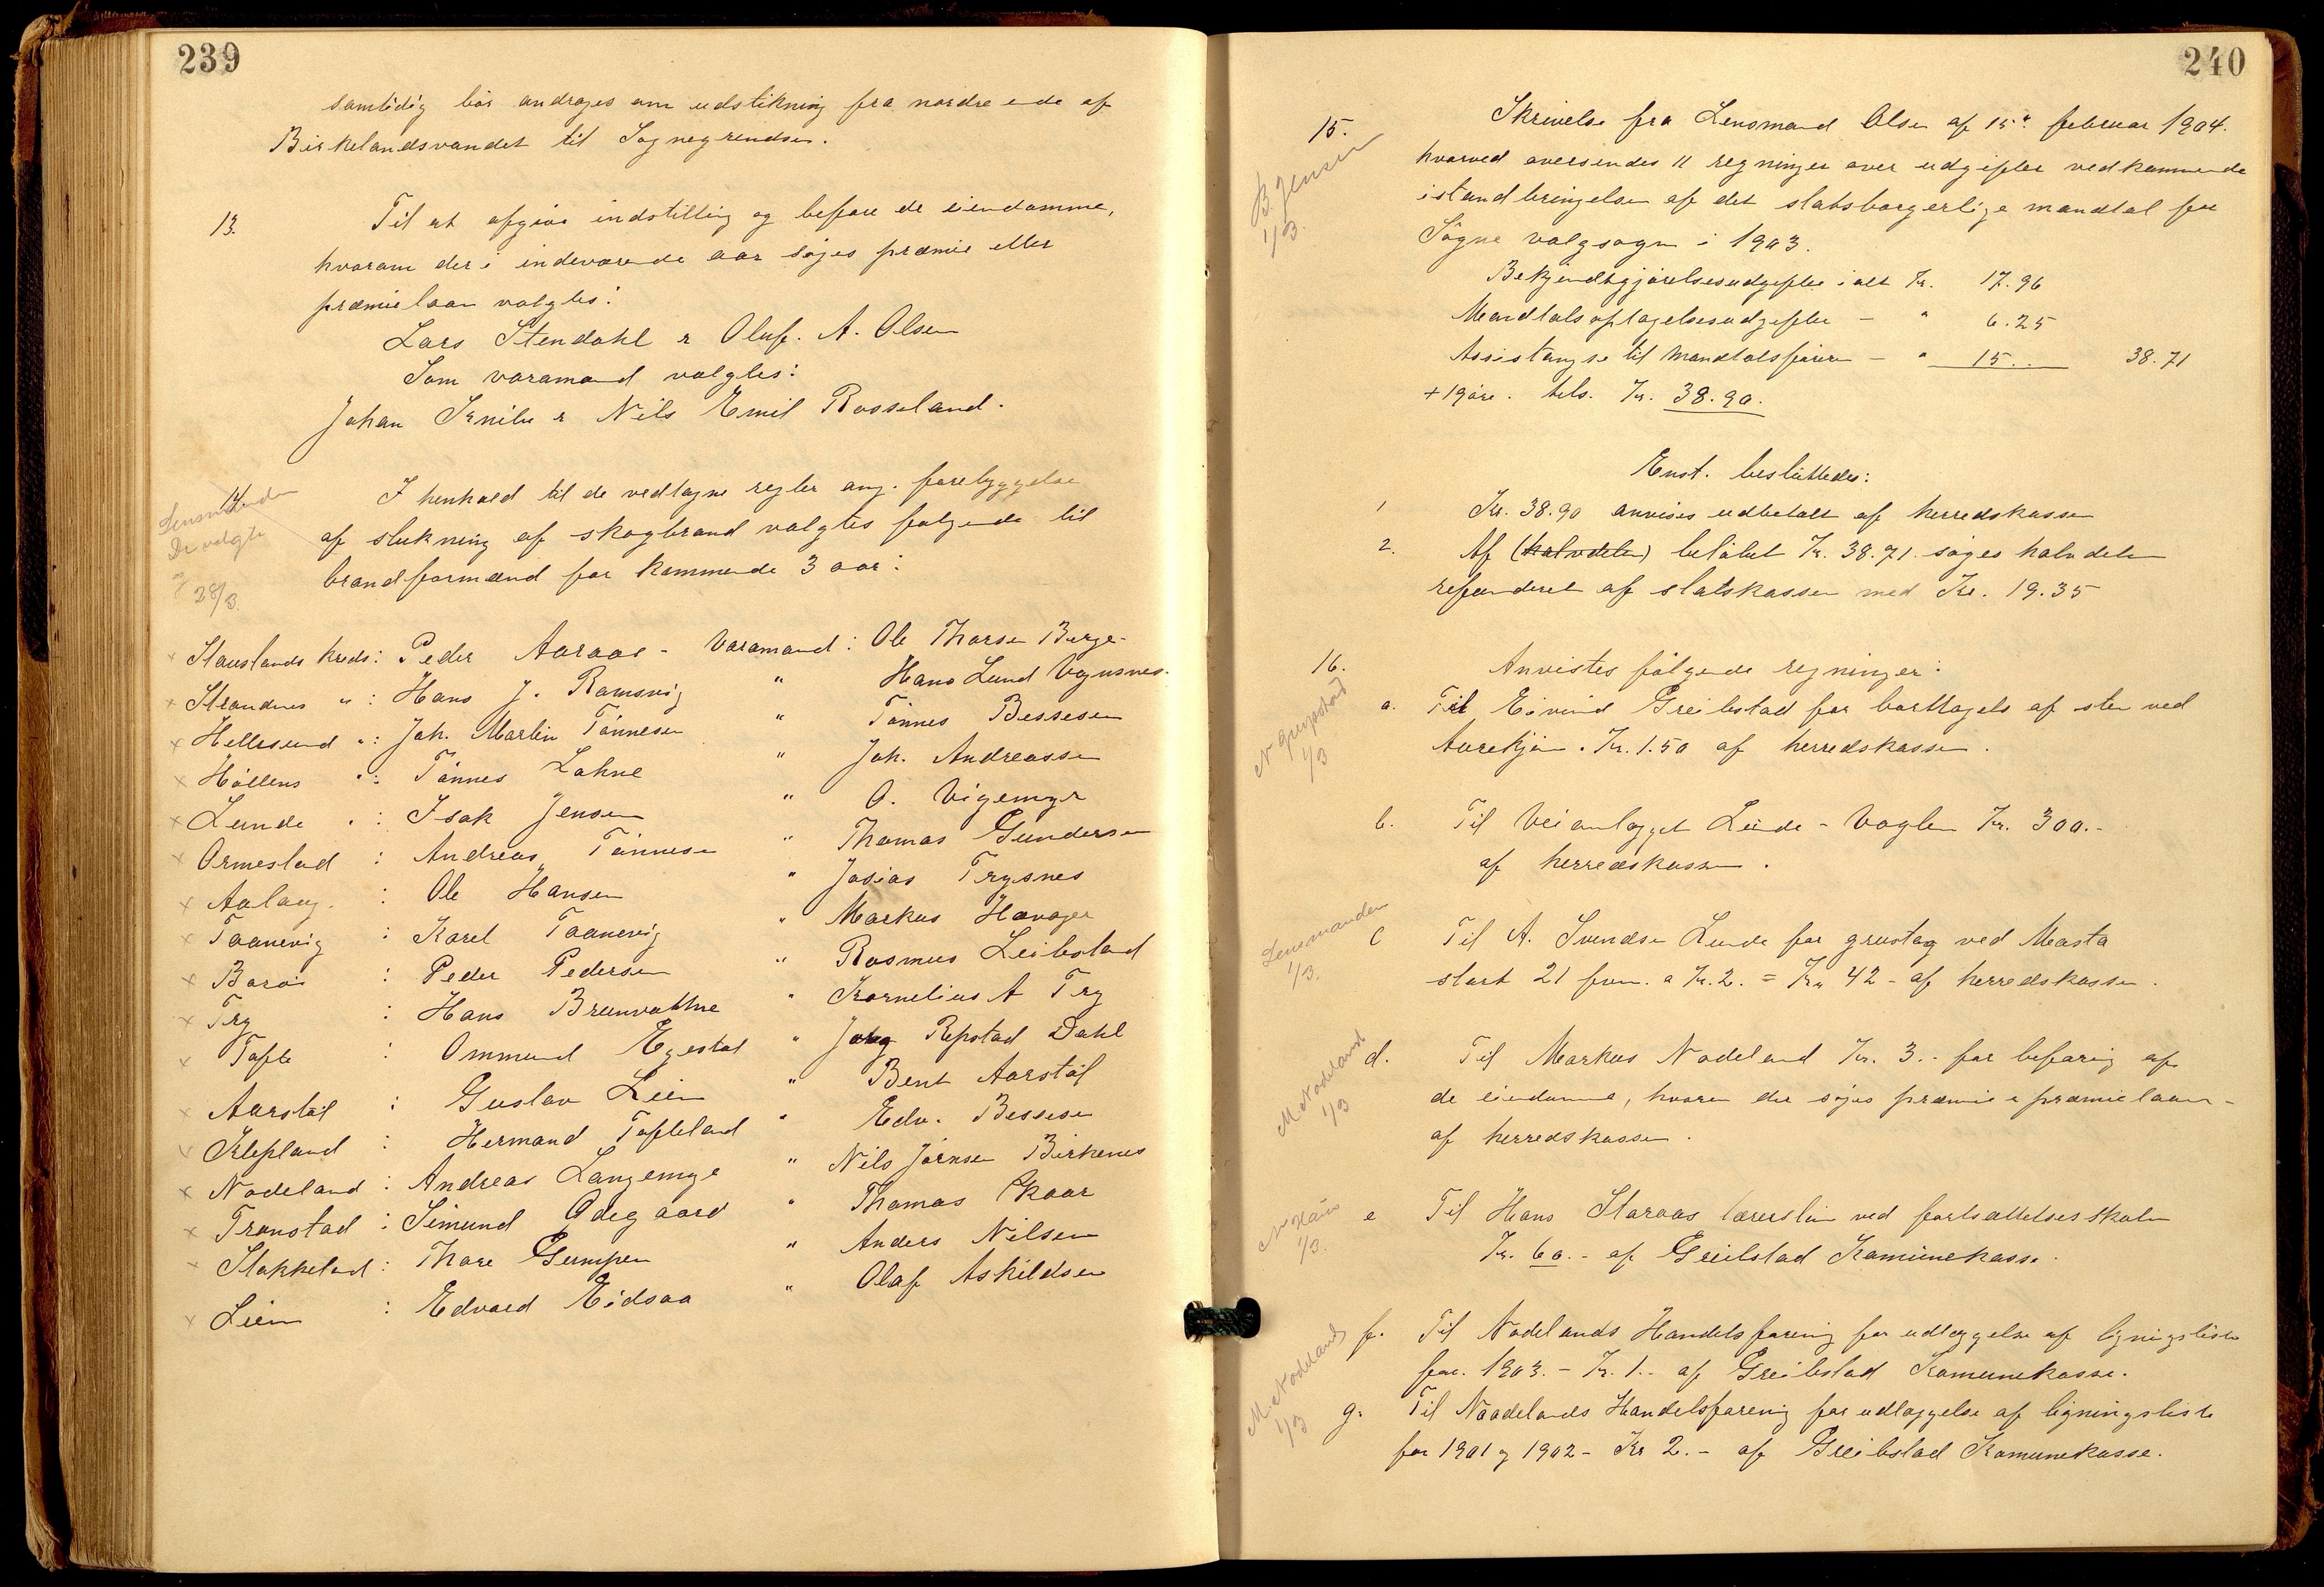 239
samtidig bør andrages om udstikning fra nordre ende af
Birkelandsvandet til Sognegrendsen.
13.
Til at afgive indstilling og befare de eiendomme,
hvorom der i indeværende aar søges præmie eller
præmielaan valgtes:
Lars Stendahl & Oluf. A. Olsen
Som varamænd valgtes:
Johan & Nils Emil Rosseland.
14
Lensmanden
De valgte
28/3.
I henhold til de vedtagne regler ang. forebyggelse
af slukning af skogbrand valgtes følgende til
brandformænd for kommende 3 aar:
x Stauslands kreds: Peder Aaraas - Varamand: Ole Thorsen Berge-
x Strandnes " : Hans J. Ramsvig " Hans Lund Vognsnes.
x Hellesund " : Joh. Martin Tønnesen " Tønnes Bessesen
x Høllens " : Tønnes Lohne " Joh. Andreassen
x Lunde " : Isak Jensen " O. Vigemyr
x Ormestad : Andreas Tønnesen " Thomas Gundersen
x Aalaug. : Ole Hansen " Josias Trysnes
x Taanevig : Karel Taanevig " Markus Havager
x Barøi : Peder Pedersen " Rasmus Leibstad
x Try : Hans Breivatne " Kornelius A Try
x Tofte : Ommund Egestøl " Repstad Dahl
x Aarstøl : Gustav Lien " Bent Aarstøl
x Klepland : Hermand Tofteland " Edv. Bessesen
x Nodeland : Andreas Langemyr " Nils Jørnsen Birkenes
x Tronstad : Simund Ødegaard " Thomas Skaar
x Stokkeland : Thore Gumpen " Anders Nilsen
x Lien : Edvard Eidsaa " Olaf Askildsen
240
15.
B Jensen
1/3.
Skrivelse fra Lensmand Olsen af 15de februar 1904.
hvorved oversendes 11 regninger over udgifter vedkommende
istandbringelsen af det statsborgerlige mandtal for
Søgne valgsogn i 1903.
Bekjendtgjørelsesudgifter ialt Kr. 17.96
Mandtalsoptagelsesudgifter - " 6.25
Assistangse til mandtalsfører - " 15.. 38.71
+ 19 øre. tils. Kr. 38.90.
Enst. besluttedes:
1 Kr. 38.90 anvises udbetalt af herredskassen
2. Af (halvdelen) beløbet Kr. 38.71. søges halvdelen
refunderet af statskassen med Kr. 19.35
16. Anvistes følgende regninger:
N Greipstad
1/3
a. Til Eivind Greibstad for borttagelse af sten ved
Kr. 1.50 af herredskassen.
b. Til Veianlægget Lunde - Voglen Kr. 300.-
af herredskassen.
Lensmanden
1/3.
c Til A. Svendsen Lunde for grustag ved Masta
stort 21 fvn. a Kr. 2. = Kr 42 - af herredskassen.
M Nodeland
1/3
d. Til Markus Nodeland Kr. 3.- for befaring af
de eiendomme, hvorom der søges præmie & præmielaan -
af herredskassen.
1/3.
e Til Hans Staraas lærerløn ved fortsættelsesskolen
Kr. 60.- af Greibstad Kommunekasse.
M Nodeland
1/3
f. Til Nodelands Handelsforenig for udlæggelse af ligningsliste
for. 1903. - Kr. 1.- af Greibstad Kommunekasse.
g. Til Naadelands Handelsforenig for udlæggelse af ligningsliste
for 1901 og 1902 - Kr 2.- af Greibstad Komunekasse.